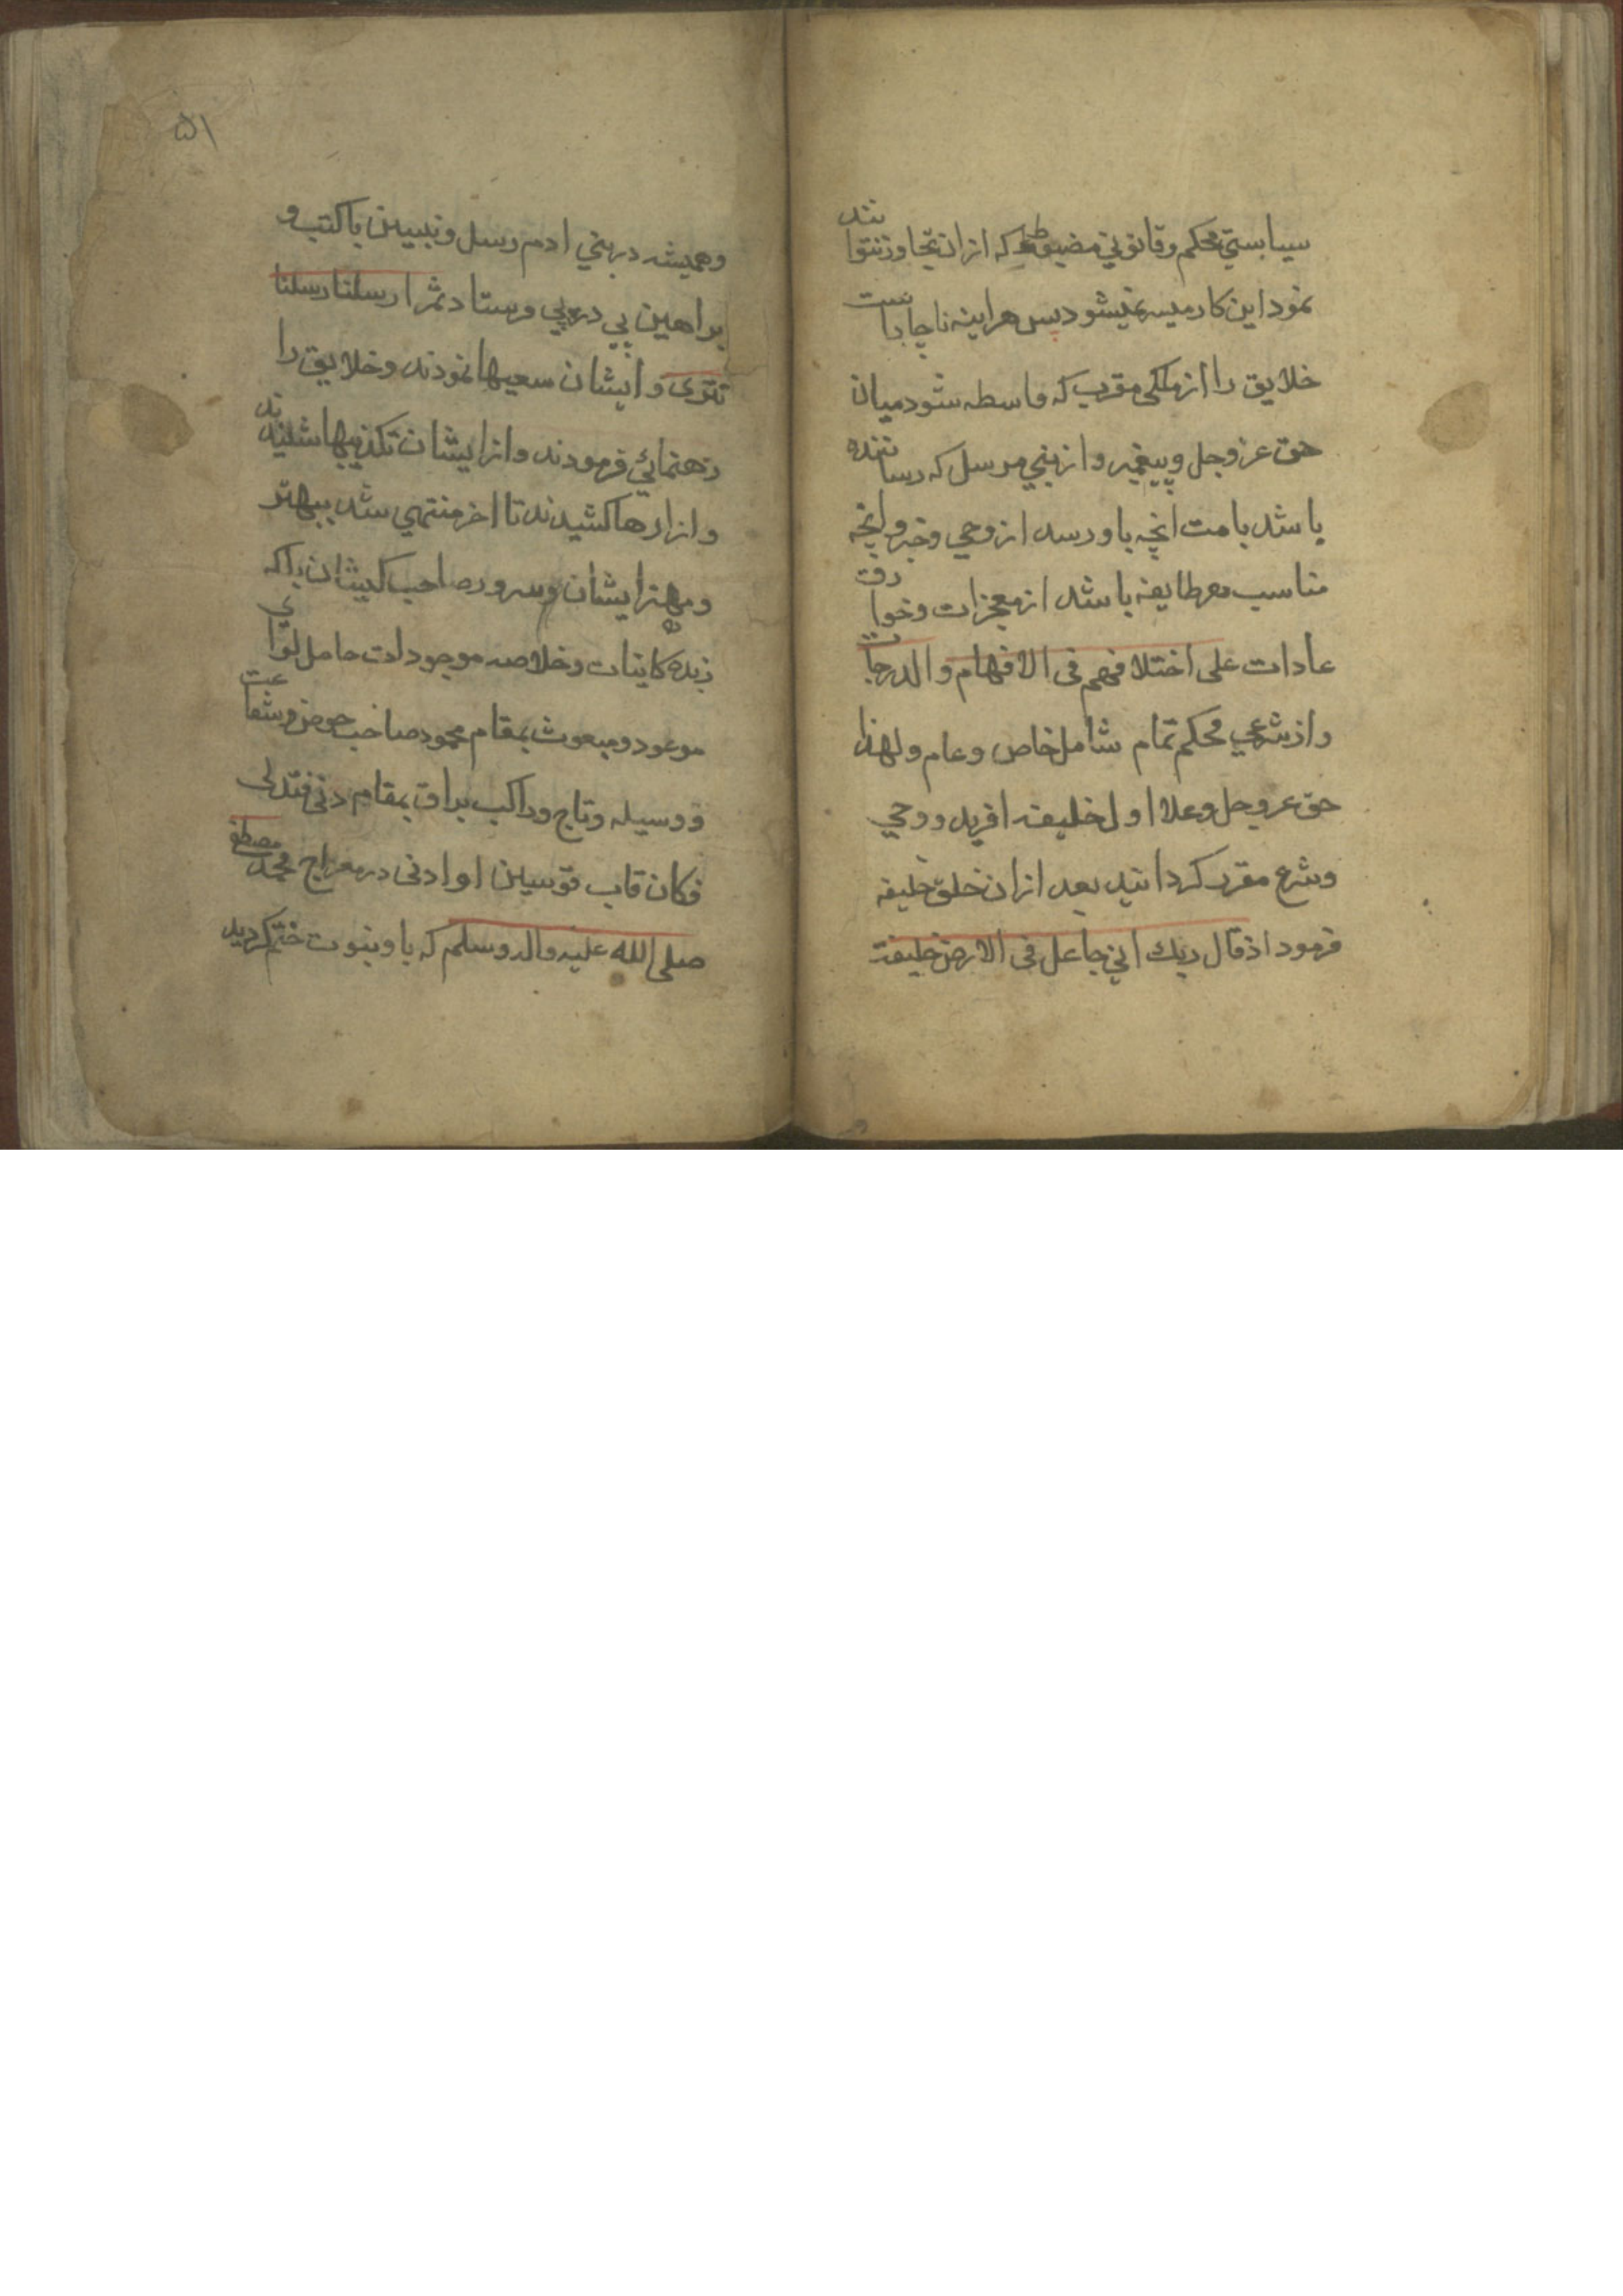 سیاستی محکم و قانونی مضبوط که از ان تجاوز نتوانند
نمود این کار میسر نمیشود پس هراینه ناچارست
خلایق را از ملکی مقرب که واسطه شود میان
حق عز وجل و پیغمبر و از نبی مرسل که رساننده
باشد بامت انچه باو رسد از وحی و خبر و انچه
مناسب هر طایفه باشد از معجزات و خوارق
عادات علی اختلافهم فی الافهام والدرجات
و از شرعی محکم تمام شامل خاص و عام ولهذا
حق عز وجل وعلا اول خلیفه افرید و وحی
و شرع مقرر کردانید بعد از ان خلق خلیفه
فرمود اذ قال ربك انی جاعل فی الارض خلیفة
۵۱
و همیشه در بنی ادم رسل و نبیین با کتب و
براهین پی در پی فرستاد ثم ارسلنا رسلنا
تتری و ایشان سعیها نمودند و خلایق را
رهنمائی فرمودند و از ایشان تکذیبها شنیدند
و ازارها کشیدند تا اخر منتهی شد ببهتر
و مهتر ایشان و سرور صاحب کیشان باکه
زبده کاینات و خلاصه موجودات حامل لوای
موعود و مبعوث بمقام محمود صاحب حوض و شفاعت
و وسیله و تاج و راکب براق بمقام دنی فتدلی
فکان قاب قوسین او ادنی در معراج محمد مصطفی
صلی الله علیه واله وسلم که باو نبوت ختم کردید